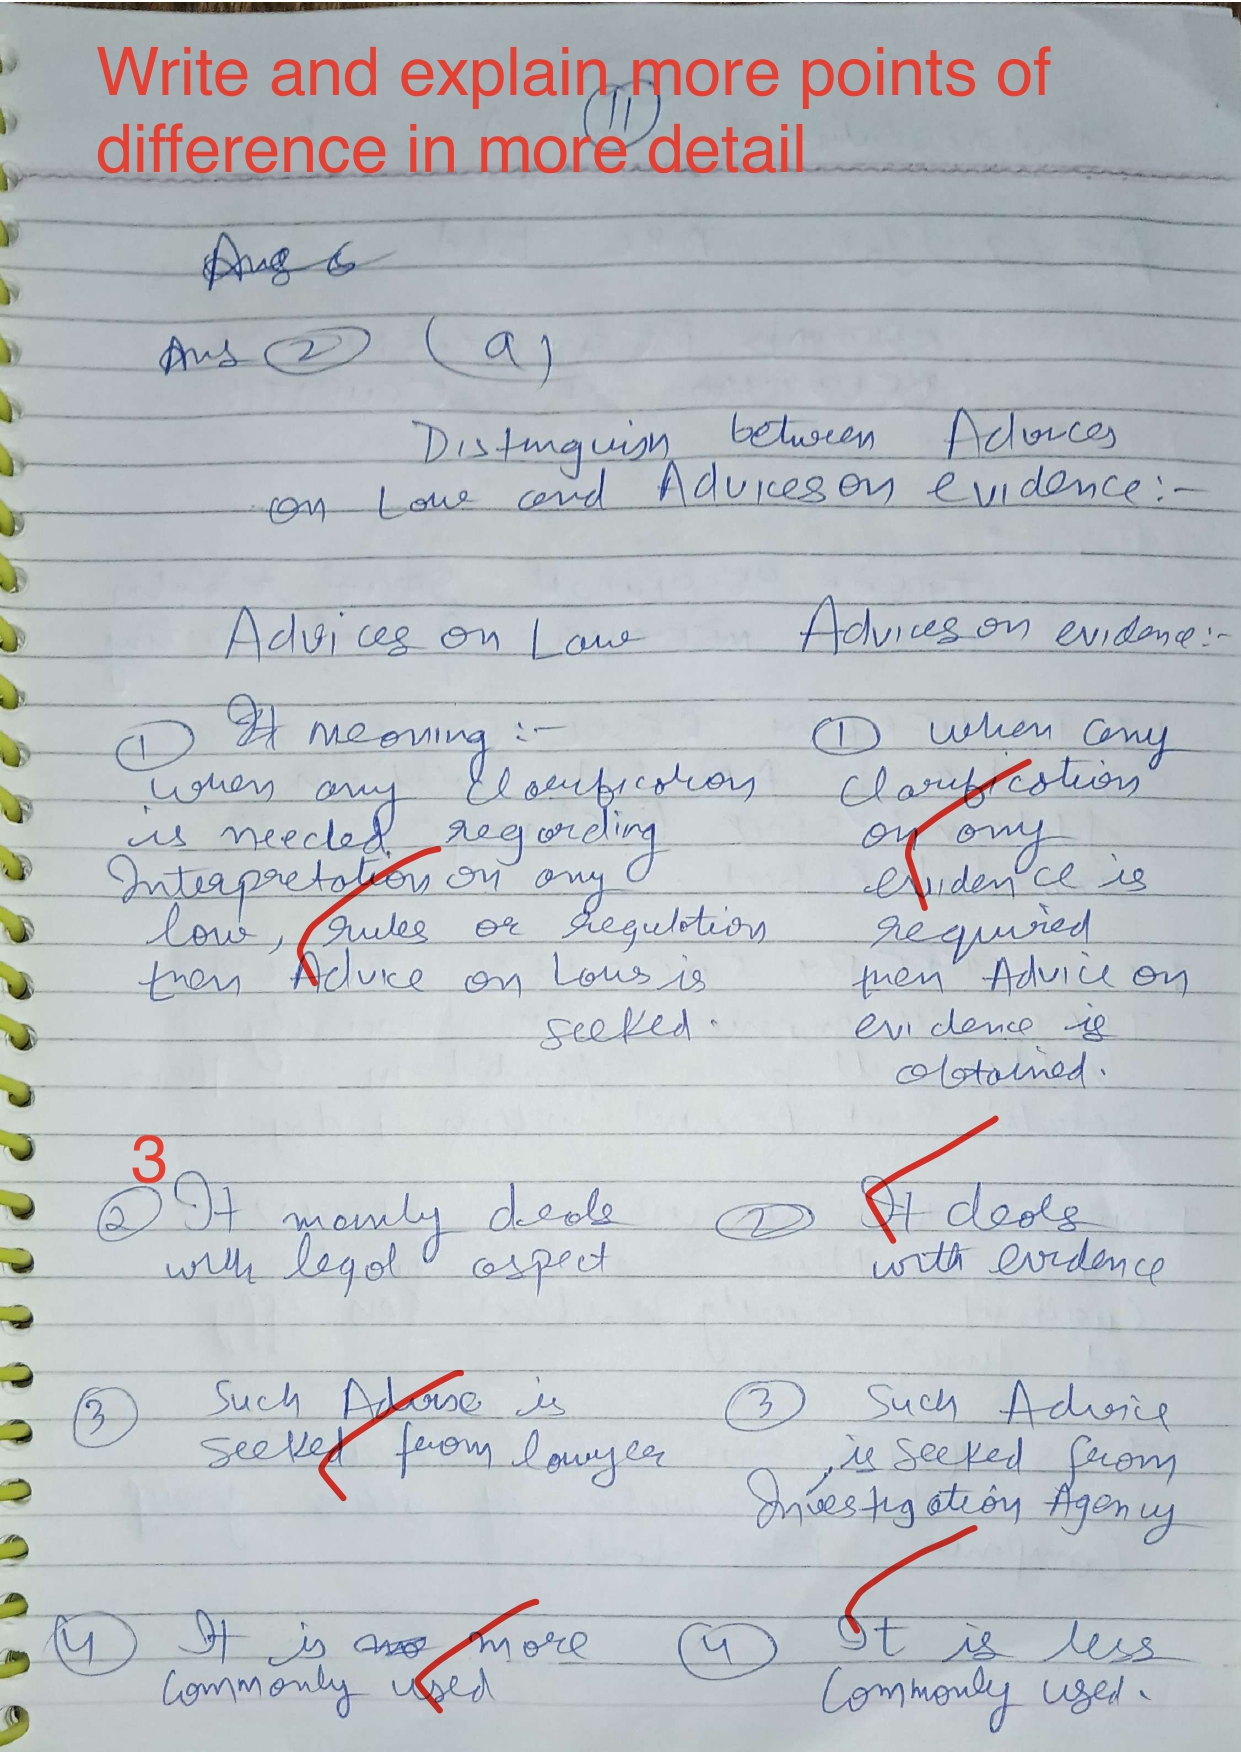 Write and explain more points of
difference in more detail
11
Ans 6
Ans 2 (a)
Distinguish between Advices
on Law and Advices on evidence:-
Advices on Law
Advices on evidence:-
1 It meaning :-
when any clarification
is needed regarding
Interpretation on any
law, rules or regulation
then Advice on Laws is
seeked.
1 when any
clarification
on any
evidence is
required
then Advice on
evidence is
obtained.
3
2 It mainly deals
with legal aspect
2 It deals
with evidence
3 Such Advise is
seeked from lawyer
3 Such Advice
is seeked from
Investigation Agency
4 It is more
commonly used
4 It is less
commonly used.